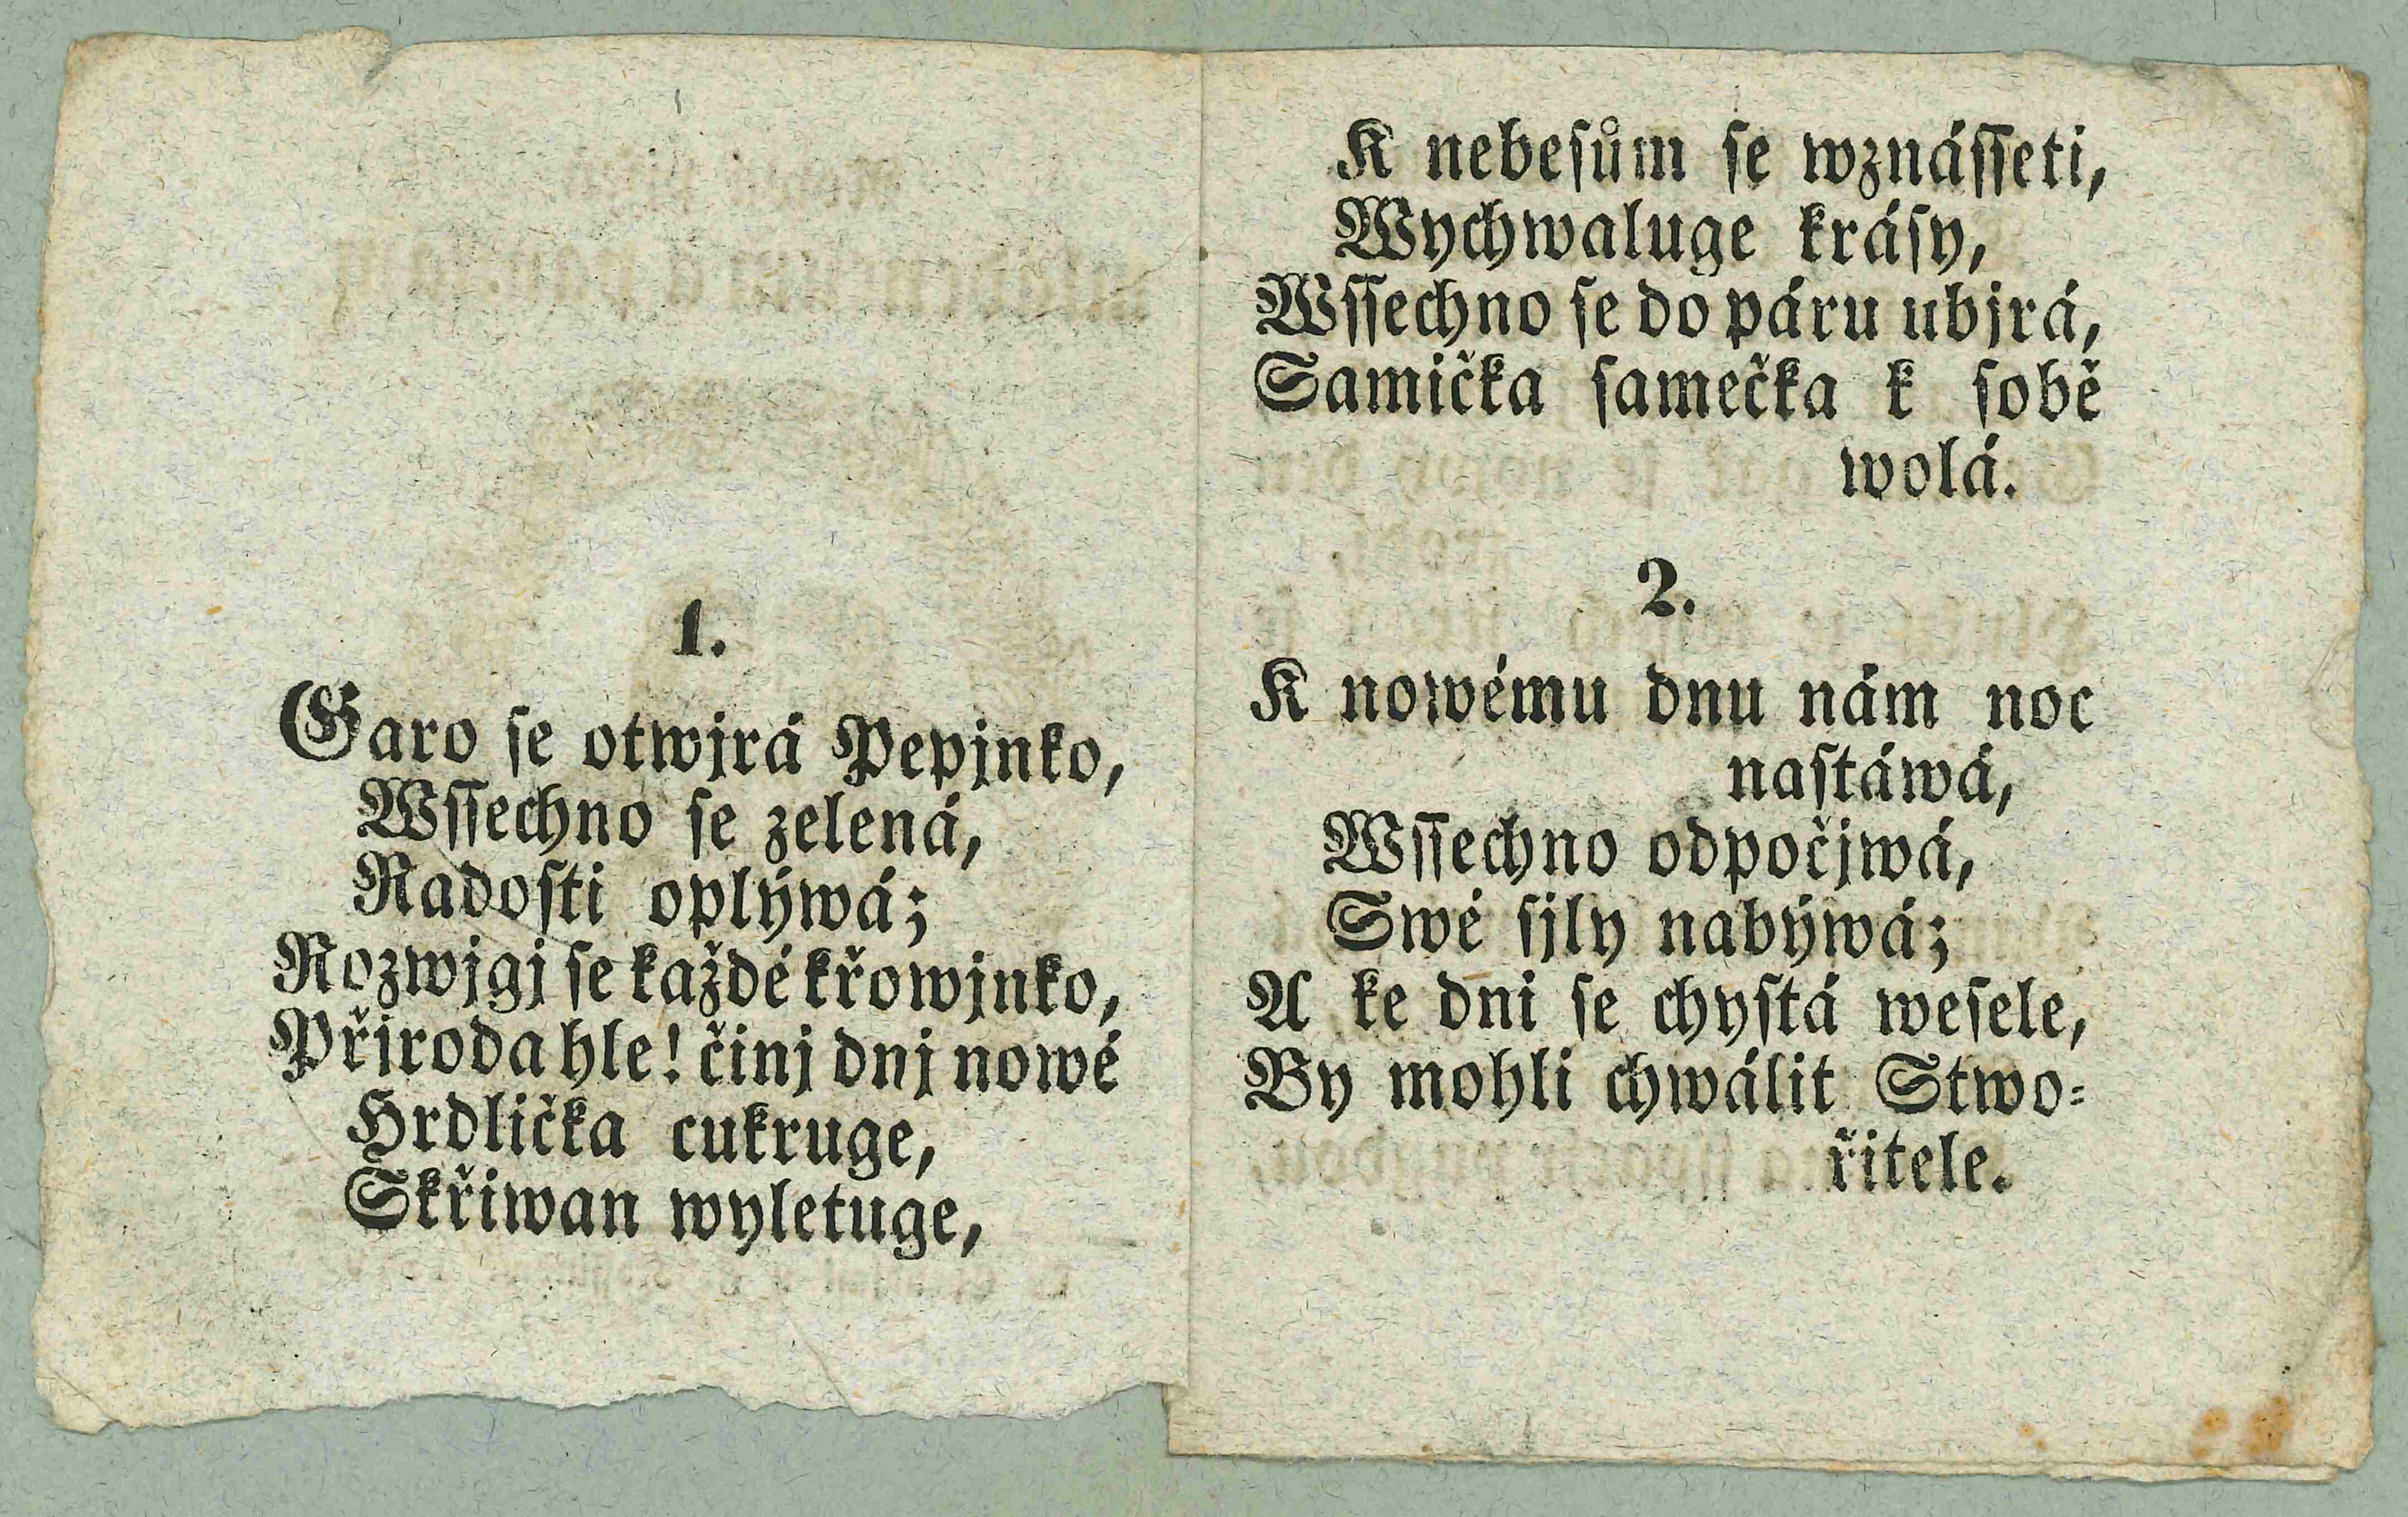 1.
Garo se otwjrá Pepjnko,
Wſſechno ſe zelená,
Radoſti oplýwá;
Rozwjgj ſe každé křowjnko,
Přjroda hle! činj dnj nowé
Hrdlička cukruge,
Skřiwan wyletuge,
K nebeſům ſe wznáſſeti,
Wychwaluge kráſy,
Wſſechno ſe do páru ubjrá,
Samička ſamečka k ſobě
wolá.
2.
K nowému dnu nám noc
naſtáwá,
Wſſechno odpočjwá,
Swé ſjly nabýwá;
A ke dni ſe chyſtá weſele,
By mohli chwálit Stwo⸗
řitele.